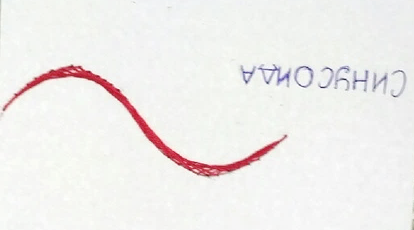 СИНУСОИДА